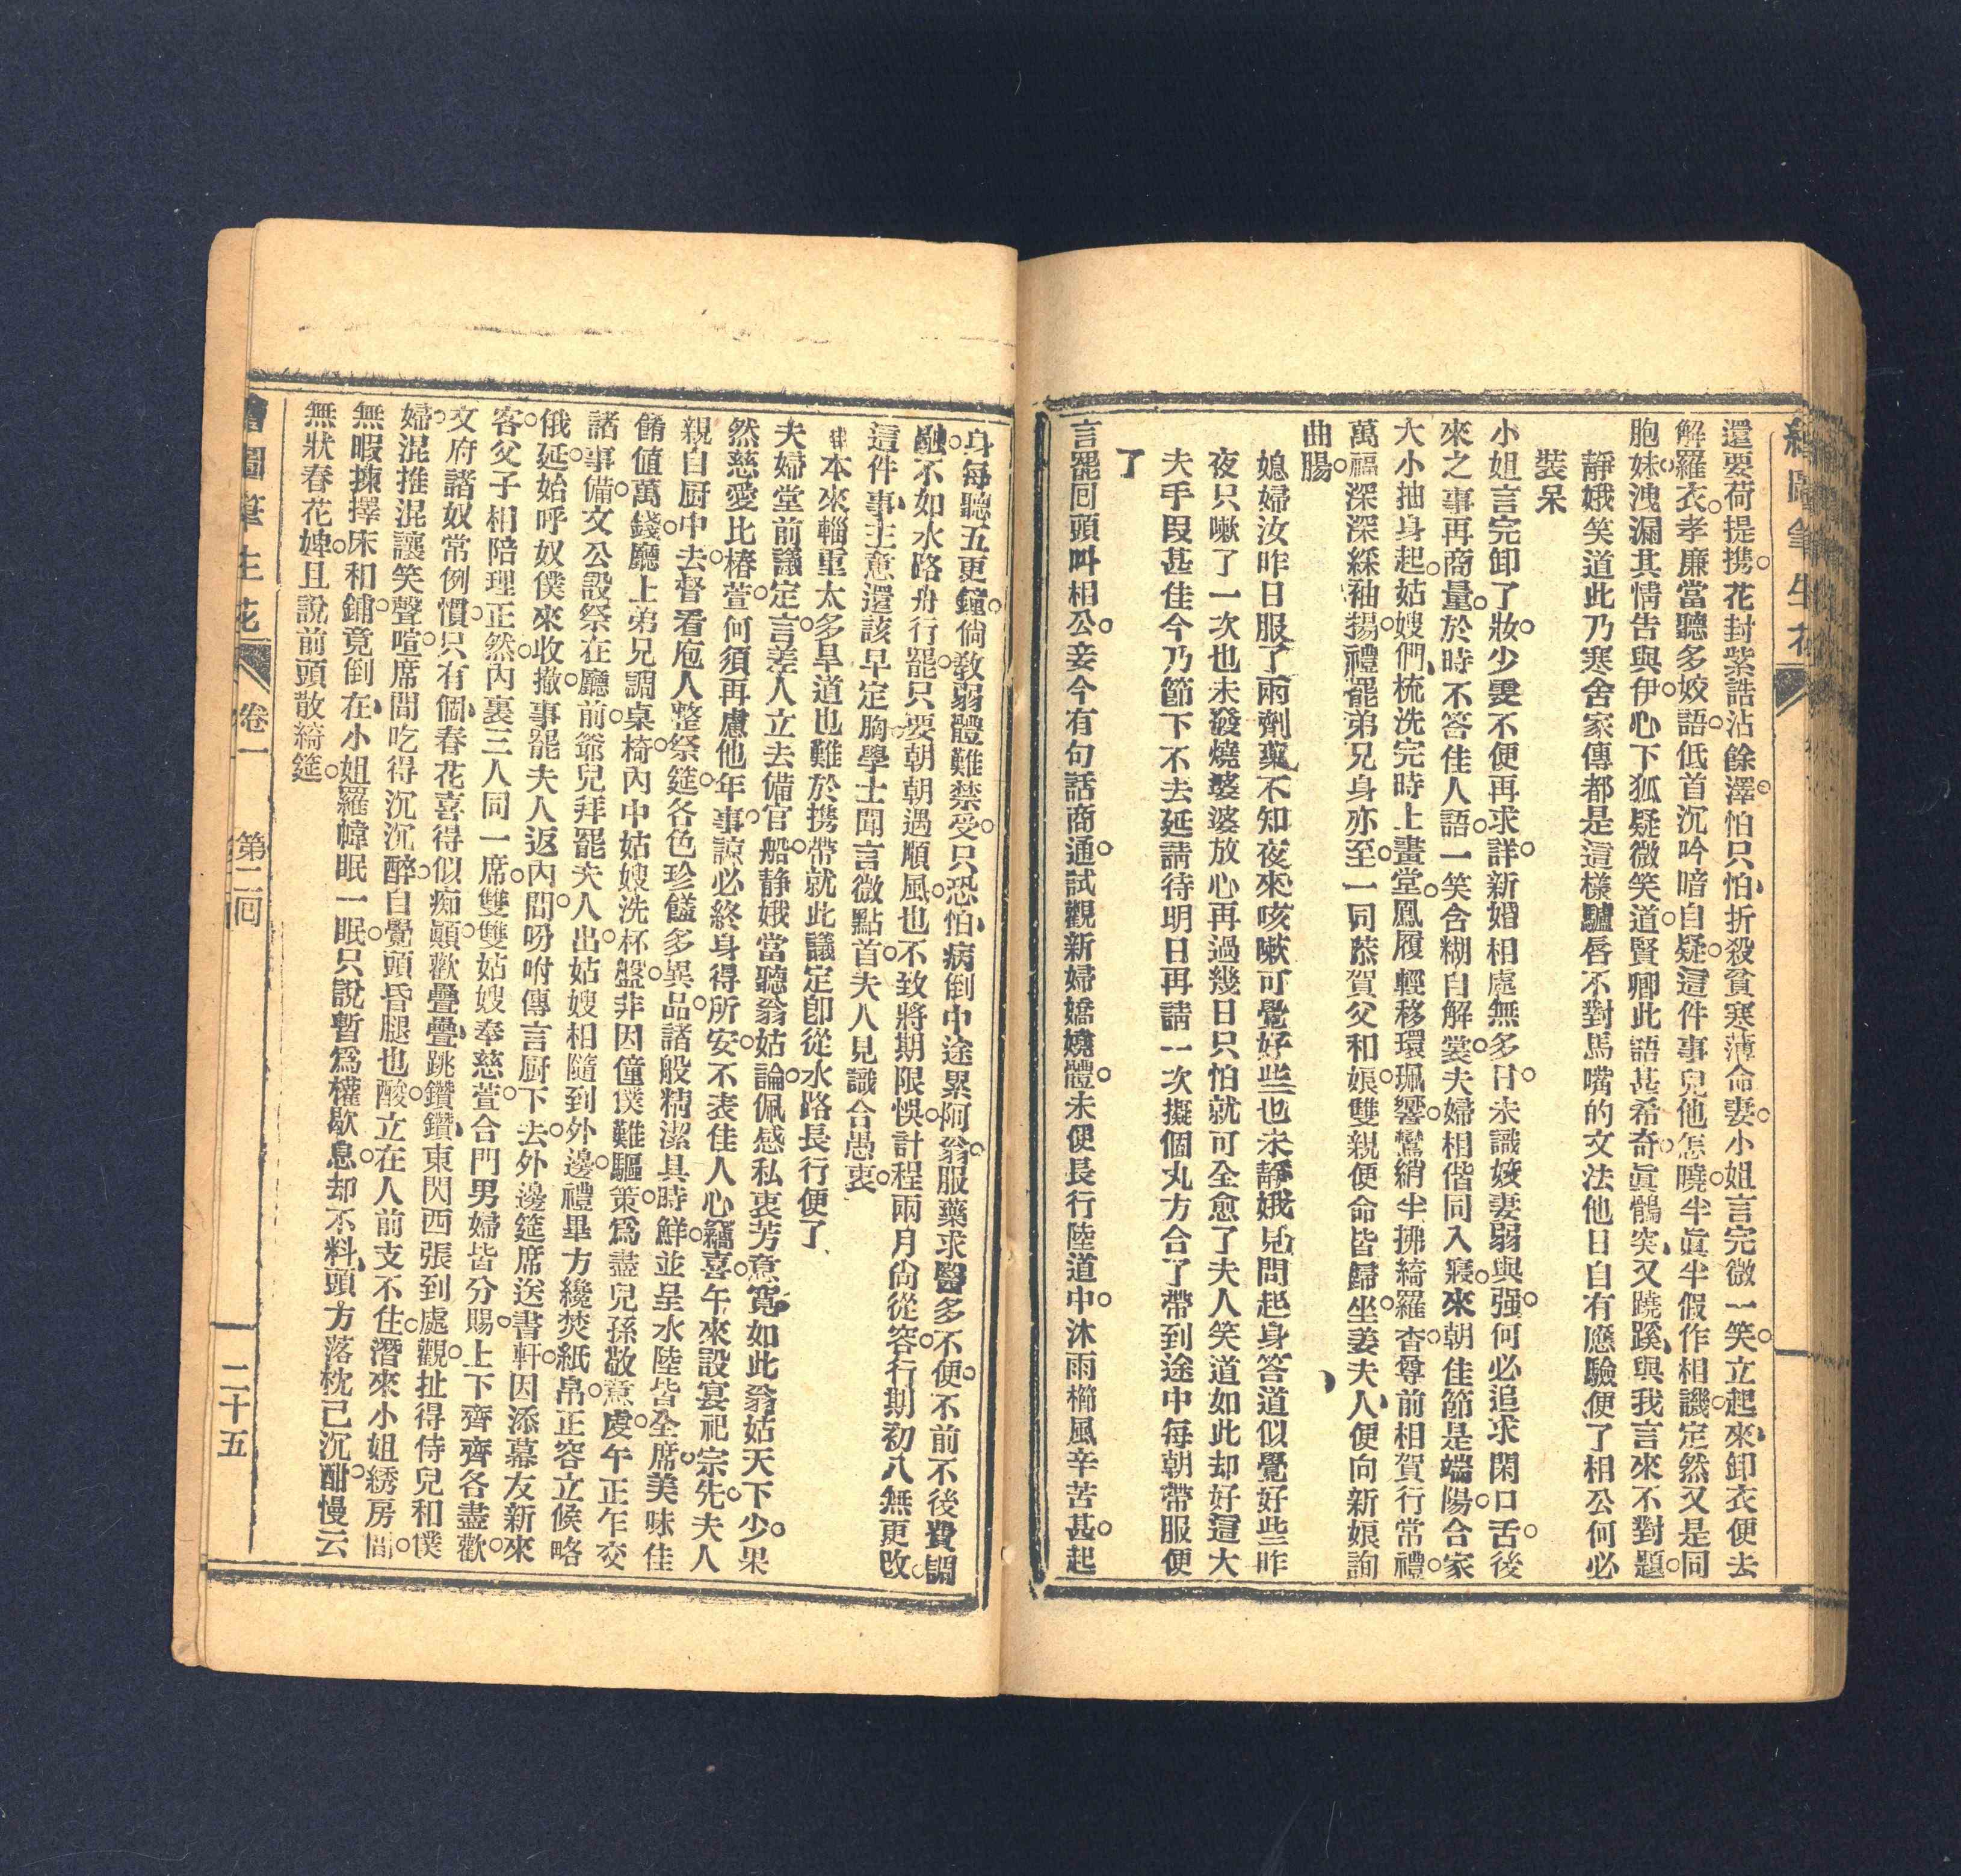 繪圖筆生花
還要荷提携。花封紫誥沾餘澤。怕只怕、折殺貧寒薄命妻。小姐言完微一笑。立起來、卸衣便去
解羅衣。孝廉當聽多姣語。低首沉吟暗自疑。這件事兒他怎曉。半眞半假作相譏。定然又是同
胞妹。洩漏其情告與伊。心下狐疑微笑道。賢卿此語甚希奇。眞鶻突、又蹺蹊、與我言來不對題。
靜娥笑道此乃寒舍家傳都是這樣驢唇不對馬嘴的文法他日自有應驗便了相公何必
裝呆
小姐言完卸了妝。少雯不便再求詳。新婚相處無多日。未識姣妻弱與强。何必追求閑口舌。後
來之事再商量。於時不答佳人語。一笑含糊自解裳。夫婦相偕同入寢。來朝佳節是端陽。合家
大小抽身起。姑嫂們、梳洗完時上畫堂。鳳履輕移環珮響。鸞綃半拂綺羅香。尊前相賀行常禮。
萬福深深綵袖揚。禮罷弟兄身亦至。一同恭賀父和娘。雙親便命皆歸坐。姜夫人、便向新娘詢
曲腸。
媳婦汝昨日服了兩劑藥不知夜來咳嗽可覺好些也未靜娥見問起身答道似覺好些昨
夜只嗽了一次也未發燒婆婆放心再過幾日只怕就可全愈了夫人笑道如此却好這大
夫手段甚佳今乃節下不去延請待明日再請一次擬個丸方合了帶到途中每朝帶服便
了
言罷回頭叫相公。妾今有句話商通。試觀新婦嬌嬈體。未便長行陸道中。沐雨櫛風辛苦甚。起
身每聽五更鐘。倘敎弱體難禁受。只恐怕、病倒中途累阿翁。服藥求醫多不便。不前不後費調
融。不如水路舟行罷。只要朝朝遇順風。也不致將期限悞。計程兩月尙從容。行期初八無更改。
這件事、主意還該早定胸。學士聞言微點首。夫人見識合愚衷。
本來輜重太多旱道也難於携帶就此議定卽從水路長行便了
夫婦堂前議定言。差人立去備官船。靜娥當聽翁姑論。佩感私衷芳意寬。如此翁姑天下少。果
然慈愛比椿萱。何須再慮他年事。諒必終身得所安。不表佳人心竊喜。午來設宴祀宗先。夫人
親自厨中去。督看庖人整祭筵。各色珍饈多異品。諸般精潔具時鮮。並呈水陸皆全席。美味佳
餚值萬錢。廳上弟兄調桌椅。內中姑嫂洗杯盤。非因僮僕難驅策。爲盡兒孫敬意虔。午正乍交
諸事備。文公設祭在廳前。爺兒拜罷夫人出。姑嫂相隨到外邊。禮畢方纔焚紙帛。正容立候略
俄延。始呼奴僕來收撤。事罷夫人返內間。吩咐傳言厨下去。外邊筵席送書軒。因添幕友新來
客。父子相陪理正然。內裏三人同一席。雙雙姑嫂奉慈萱。合門男婦皆分賜。上下齊齊各盡歡。
文府諸奴常例慣。只有個、春花喜得似痴顚。歡疊疊、跳鑽鑽、東閃西張到處觀。扯得侍兒和僕
婦。混推混讓笑聲喧。席間吃得沉沉醉。自覺頭昏腿也酸。立在人前支不住。潛來小姐綉房間。
無暇揀擇床和鋪。竟倒在、小姐羅幃眠一眠。只說暫爲權歇息。却不料、頭方落枕已沉酣。慢云
無狀春花婢。且說前頭散綺筵。
繪圖筆生花 卷一 第二回 二十五